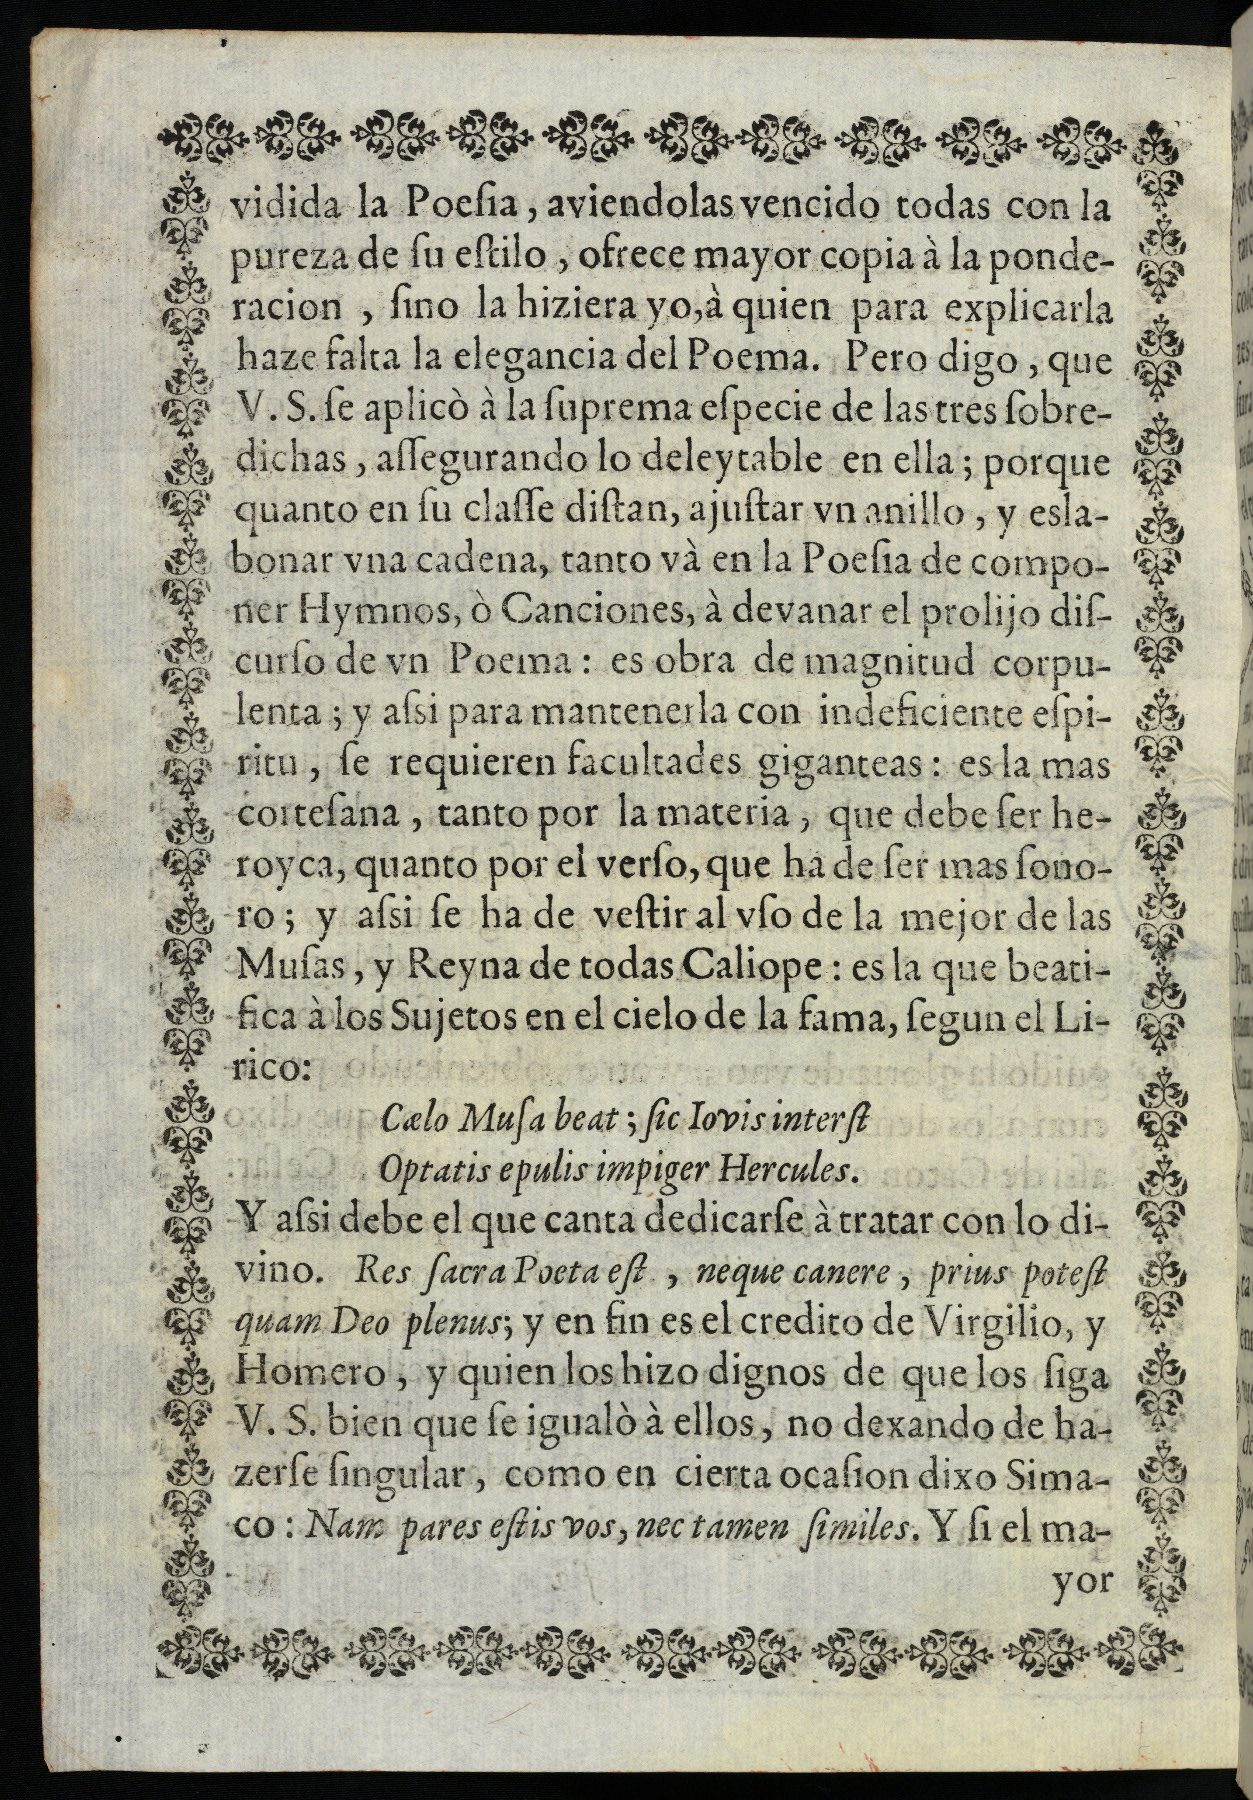 vidida la Poeſia, aviendolas vencido todas con la
pureza de ſu eſtilo, ofrece mayor copia à la ponde-
racion, ſino la hiziera yo, à quien para explicarla
haze falta la elegancia del Poema. Pero digo, que
V. S. ſe aplicò à la ſuprema eſpecie de las tres ſobre-
dichas, aſſegurando lo deleytable en ella; porque
quanto en ſu claſſe diſtan, ajuſtar vn anillo, y esla-
bonar vna cadena, tanto và en la Poeſia de compo-
ner Hymnos, ò Canciones, à devanar el prolijo diſ-
curſo de vn Poema: es obra de magnitud corpu-
lenta; y aſsi para mantenerla con indeficiente eſpi-
ritu, ſe requieren facultades giganteas: es la mas
corteſana, tanto por la materia, que debe ſer he-
royca, quanto por el verſo, que ha de ſer mas ſono-
ro; y aſsi ſe ha de veſtir al vſo de la mejor de las
Muſas, y Reyna de todas Caliope: es la que beati-
fica à los Sujetos en el cielo de la fama, ſegun el Li-
rico:
Cælo Muſa beat; ſic Iovis interſt
Optatis epulis impiger Hercules.
Y aſsi debe el que canta dedicarſe à tratar con lo di-
vino. Res ſacra Poeta eſt, neque canere, prius poteſt
quam Deo plenus; y en fin es el credito de Virgilio, y
Homero, y quien los hizo dignos de que los ſiga
V. S. bien que ſe igualò à ellos, no dexando de ha-
zerſe ſingular, como en cierta ocaſion dixo Sima-
co: Nam pares eſtis vos, nec tamen ſimiles. Y ſi el ma-
yor